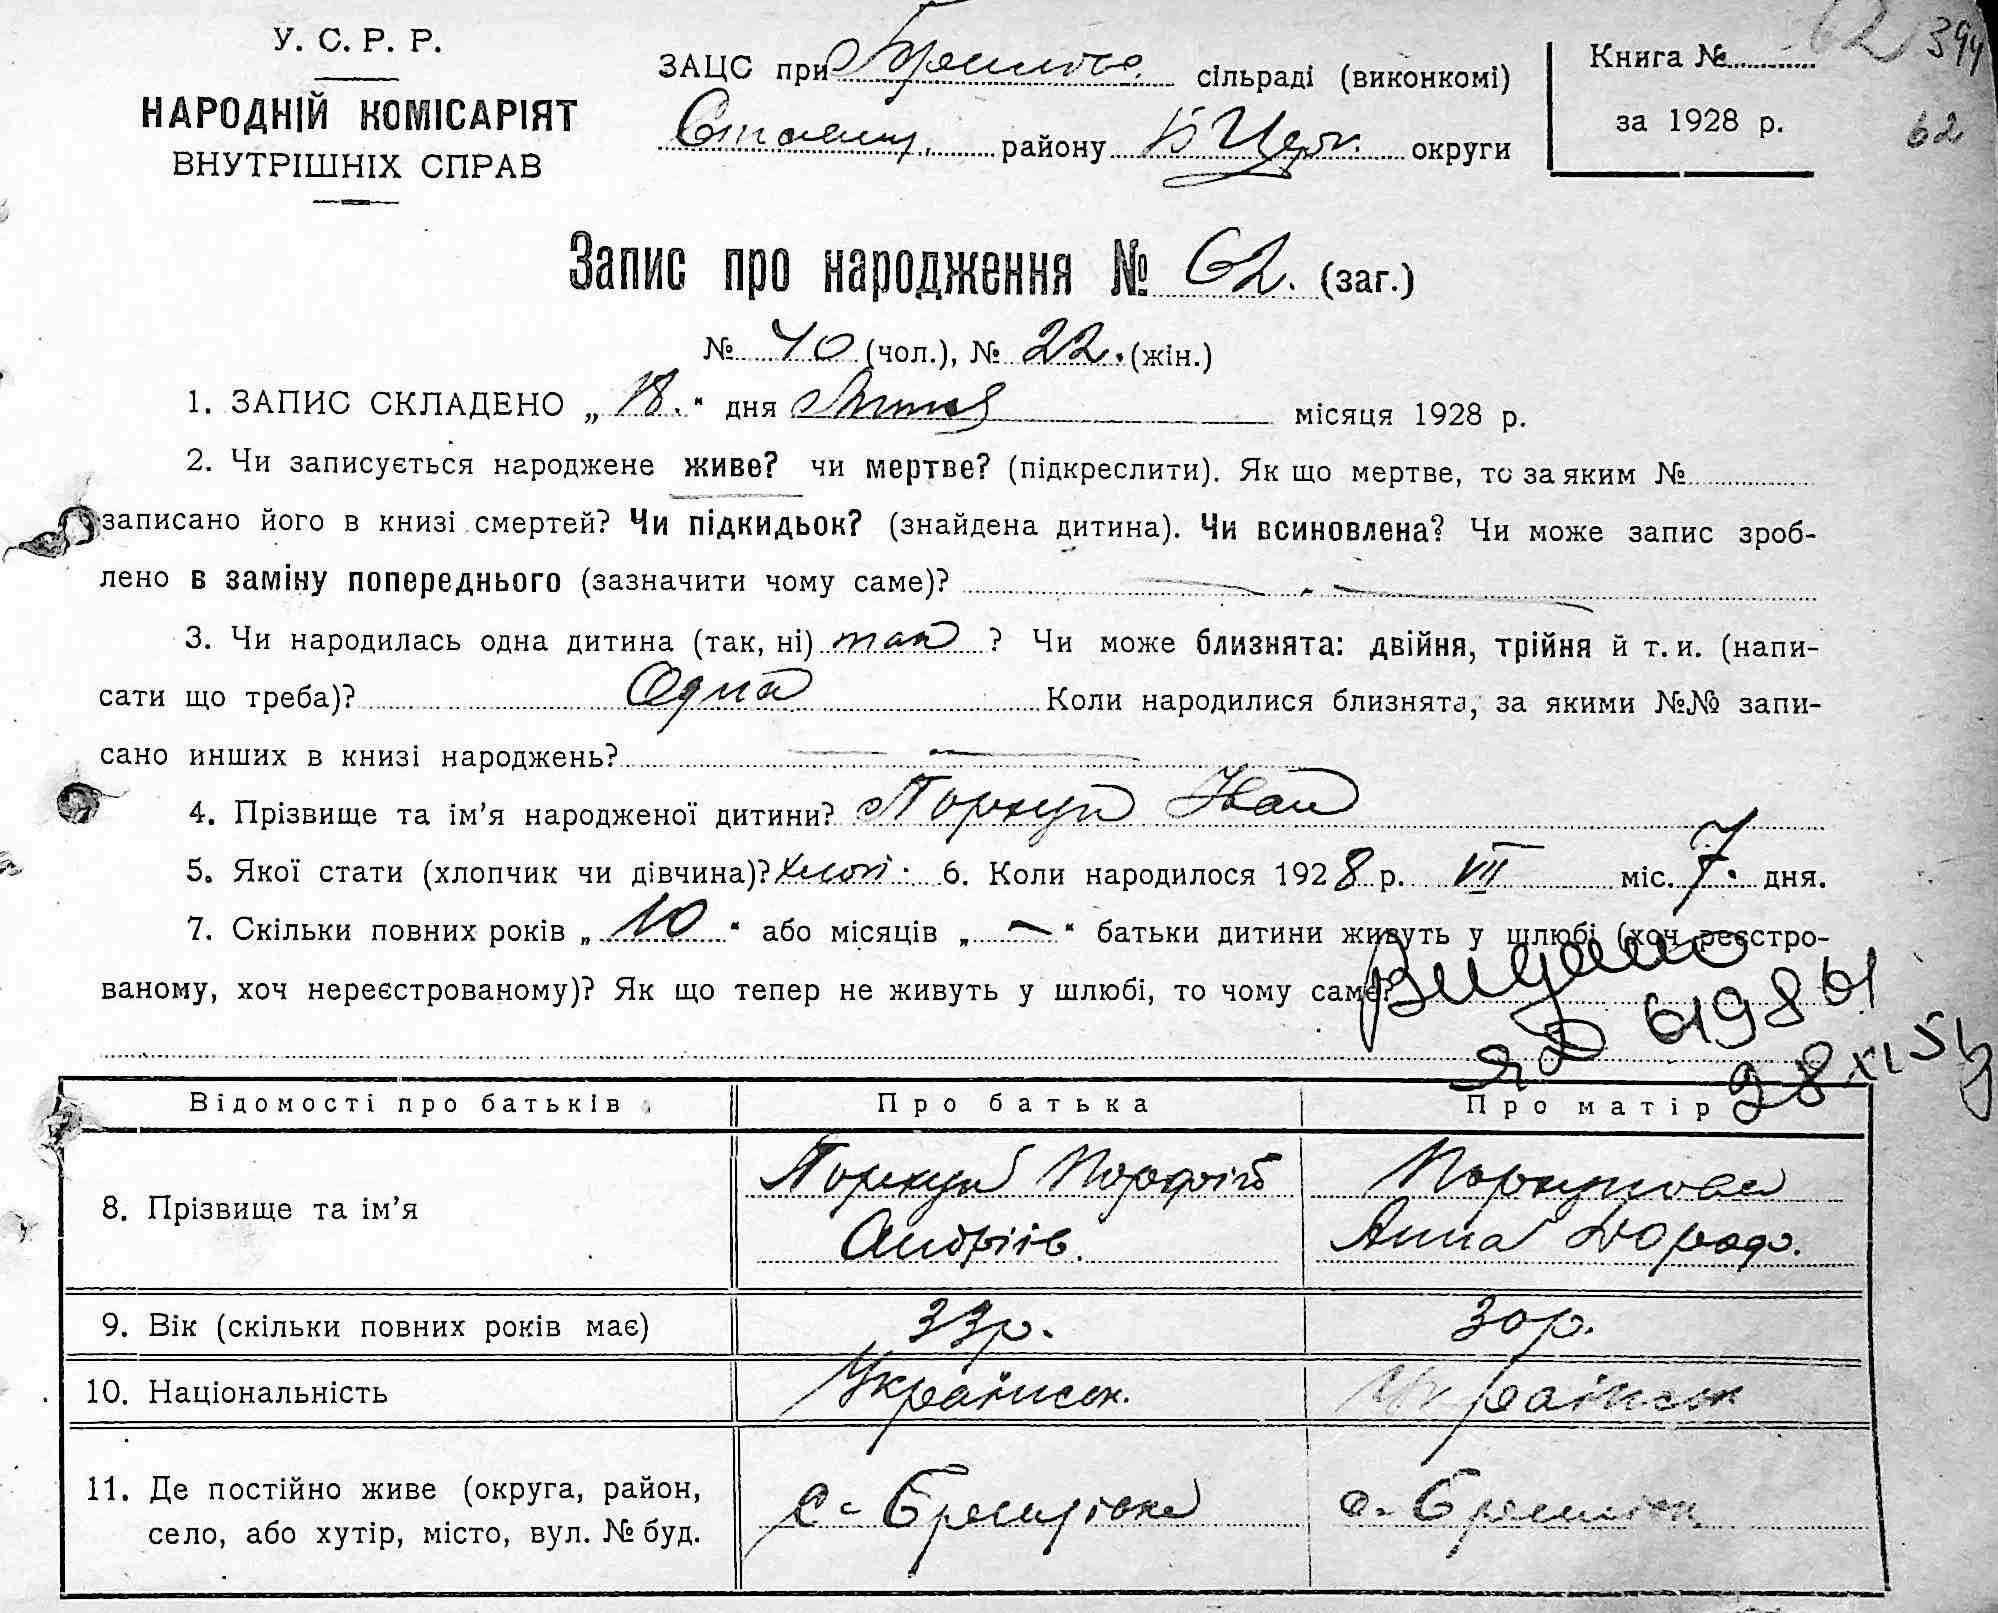 У. С. Р. Р.
НАРОДНІЙ КОМІСАРІЯТ
ВНУТРІШНІХ СПРАВ
ЗАЦС при сільраді (виконкомі)
району Б Церк. округи
Книга №
за 1928 р.
62 394
62
Запис про народження № 62. (заг.)
№ 40 (чол.), № 22. (жін.)
1. ЗАПИС СКЛАДЕНО „ 18. “ дня Липня місяця 1928 р.
2. Чи записується народжене живе? чи мертве? (підкреслити). Як що мертве, то за яким №
записано його в книзі смертей? Чи підкидьок? (знайдена дитина). Чи всиновлена? Чи може запис зроб-
лено в заміну попереднього (зазначити чому саме)? —
3. Чи народилась одна дитина (так, ні) так ? Чи може близнята: двійня, трійня й т. и. (напи-
сати що треба)? Одна Коли народилися близнята, за якими №№ запи-
сано инших в книзі народжень? —
4. Прізвище та ім’я народженої дитини? Поркун Іван
5. Якої стати (хлопчик чи дівчина)? хлоп. 6. Коли народилося 1928 р. VII міс. 7. дня.
7. Скільки повних років „ 10 “ або місяців „ — “ батьки дитини живуть у шлюбі (хоч реєстро-
ваному, хоч нереєстрованому)? Як що тепер не живуть у шлюбі, то чому саме?
Видано
28 XI 51
Відомості про батьків Про батька Про матір
8. Прізвище та ім’я Поркун Порфір Поркунова
Андріїв. Анна
9. Вік (скільки повних років має) 33р. 30р.
10. Національність Українськ. Українськ
11. Де постійно живе (округа, район,
село, або хутір, місто, вул. № буд.
с-
с-